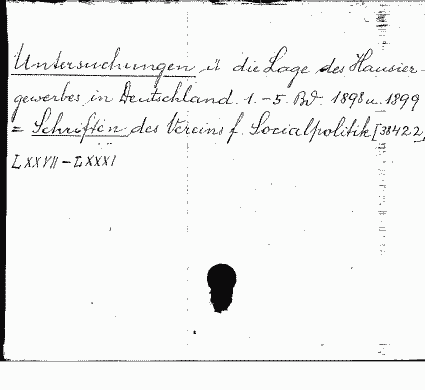 Untersuchungen ü die Lage des Hausier-
gewerbes in Deutschland. 1.-5. Bd. 1898 u. 1899
= Schriften des Vereins f. Socialpolitik [38422,
LXXVII-LXXXI